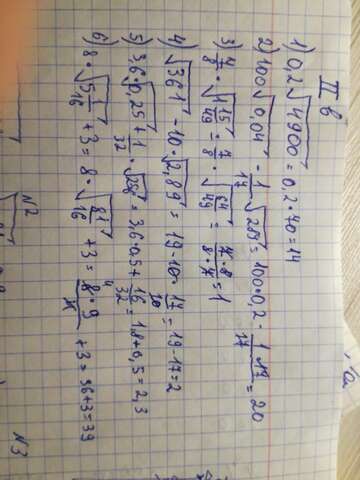 II в
1) 0,2√4900 = 0,2·70=14
2) 100√0,04 - 1/17 √289 = 100·0,2 - 1·17/17 = 20
3) 7/8 · √1 15/49 = 7/8 · √64/49 = 7·8/8·7 = 1
4) √361 - 10·√2,89 = 19-10·17/10 = 19-17=2
5) 3,6·√0,25 + 1/32 · √256 = 3,6·0,5+ 16/32 = 1,8+0,5=2,3
6) 8·√5 1/16 +3 = 8·√81/16 +3 = 8·9/4 +3 = 36+3=39
N2
N3